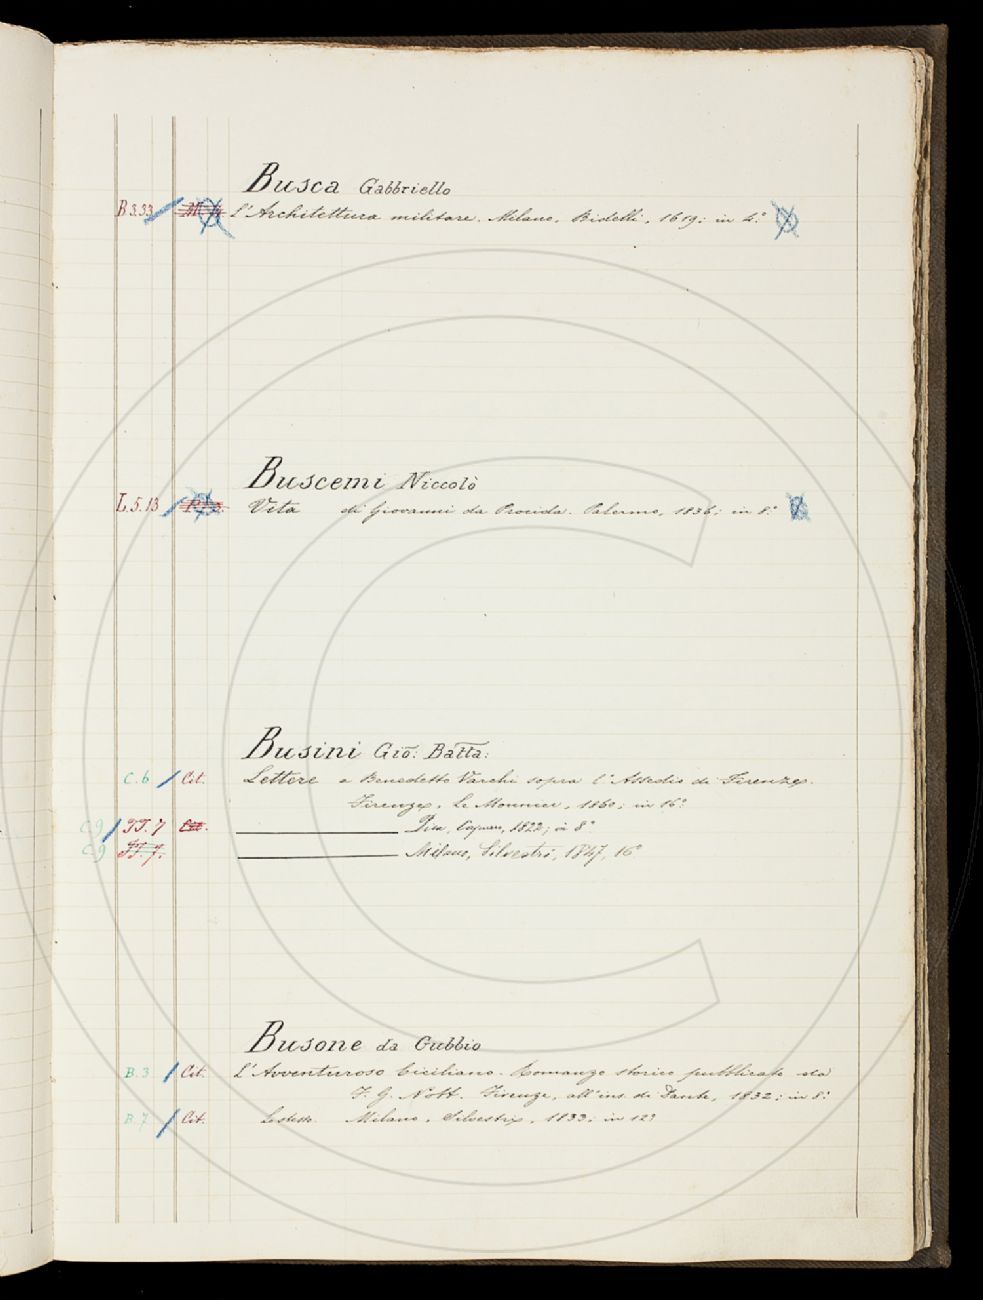 Busca Gabbriello
B 3.33 L'Architettura militare. Milano, Bidelli, 1619; in 4.°
Buscemi Niccolò
L. 5. 13 Vita di Giovanni da Procida. Palermo, 1836; in 8.°
Busini Gio: Batta:
C. 6 Cit. Lettere a Benedetto Varchi sopra l'Assedio di Firenze.
Firenze, Le Monnier, 1860; in 16°
C 9 TT. 7 Cit. Pisa, Capurro, 1822; in 8°
C 9 TT. 7. Milano, Silvestri, 1847, 16°
Busone da Gubbio
B. 3 Cit. L'Avventuroso Ciciliano. Romanzo storico pubblicato da
F. G. Nott. Firenze, all'ins. di Dante, 1832; in 8°
B 7 Cit. Lo stesso. Milano, Silvestri, 1833; in 12°